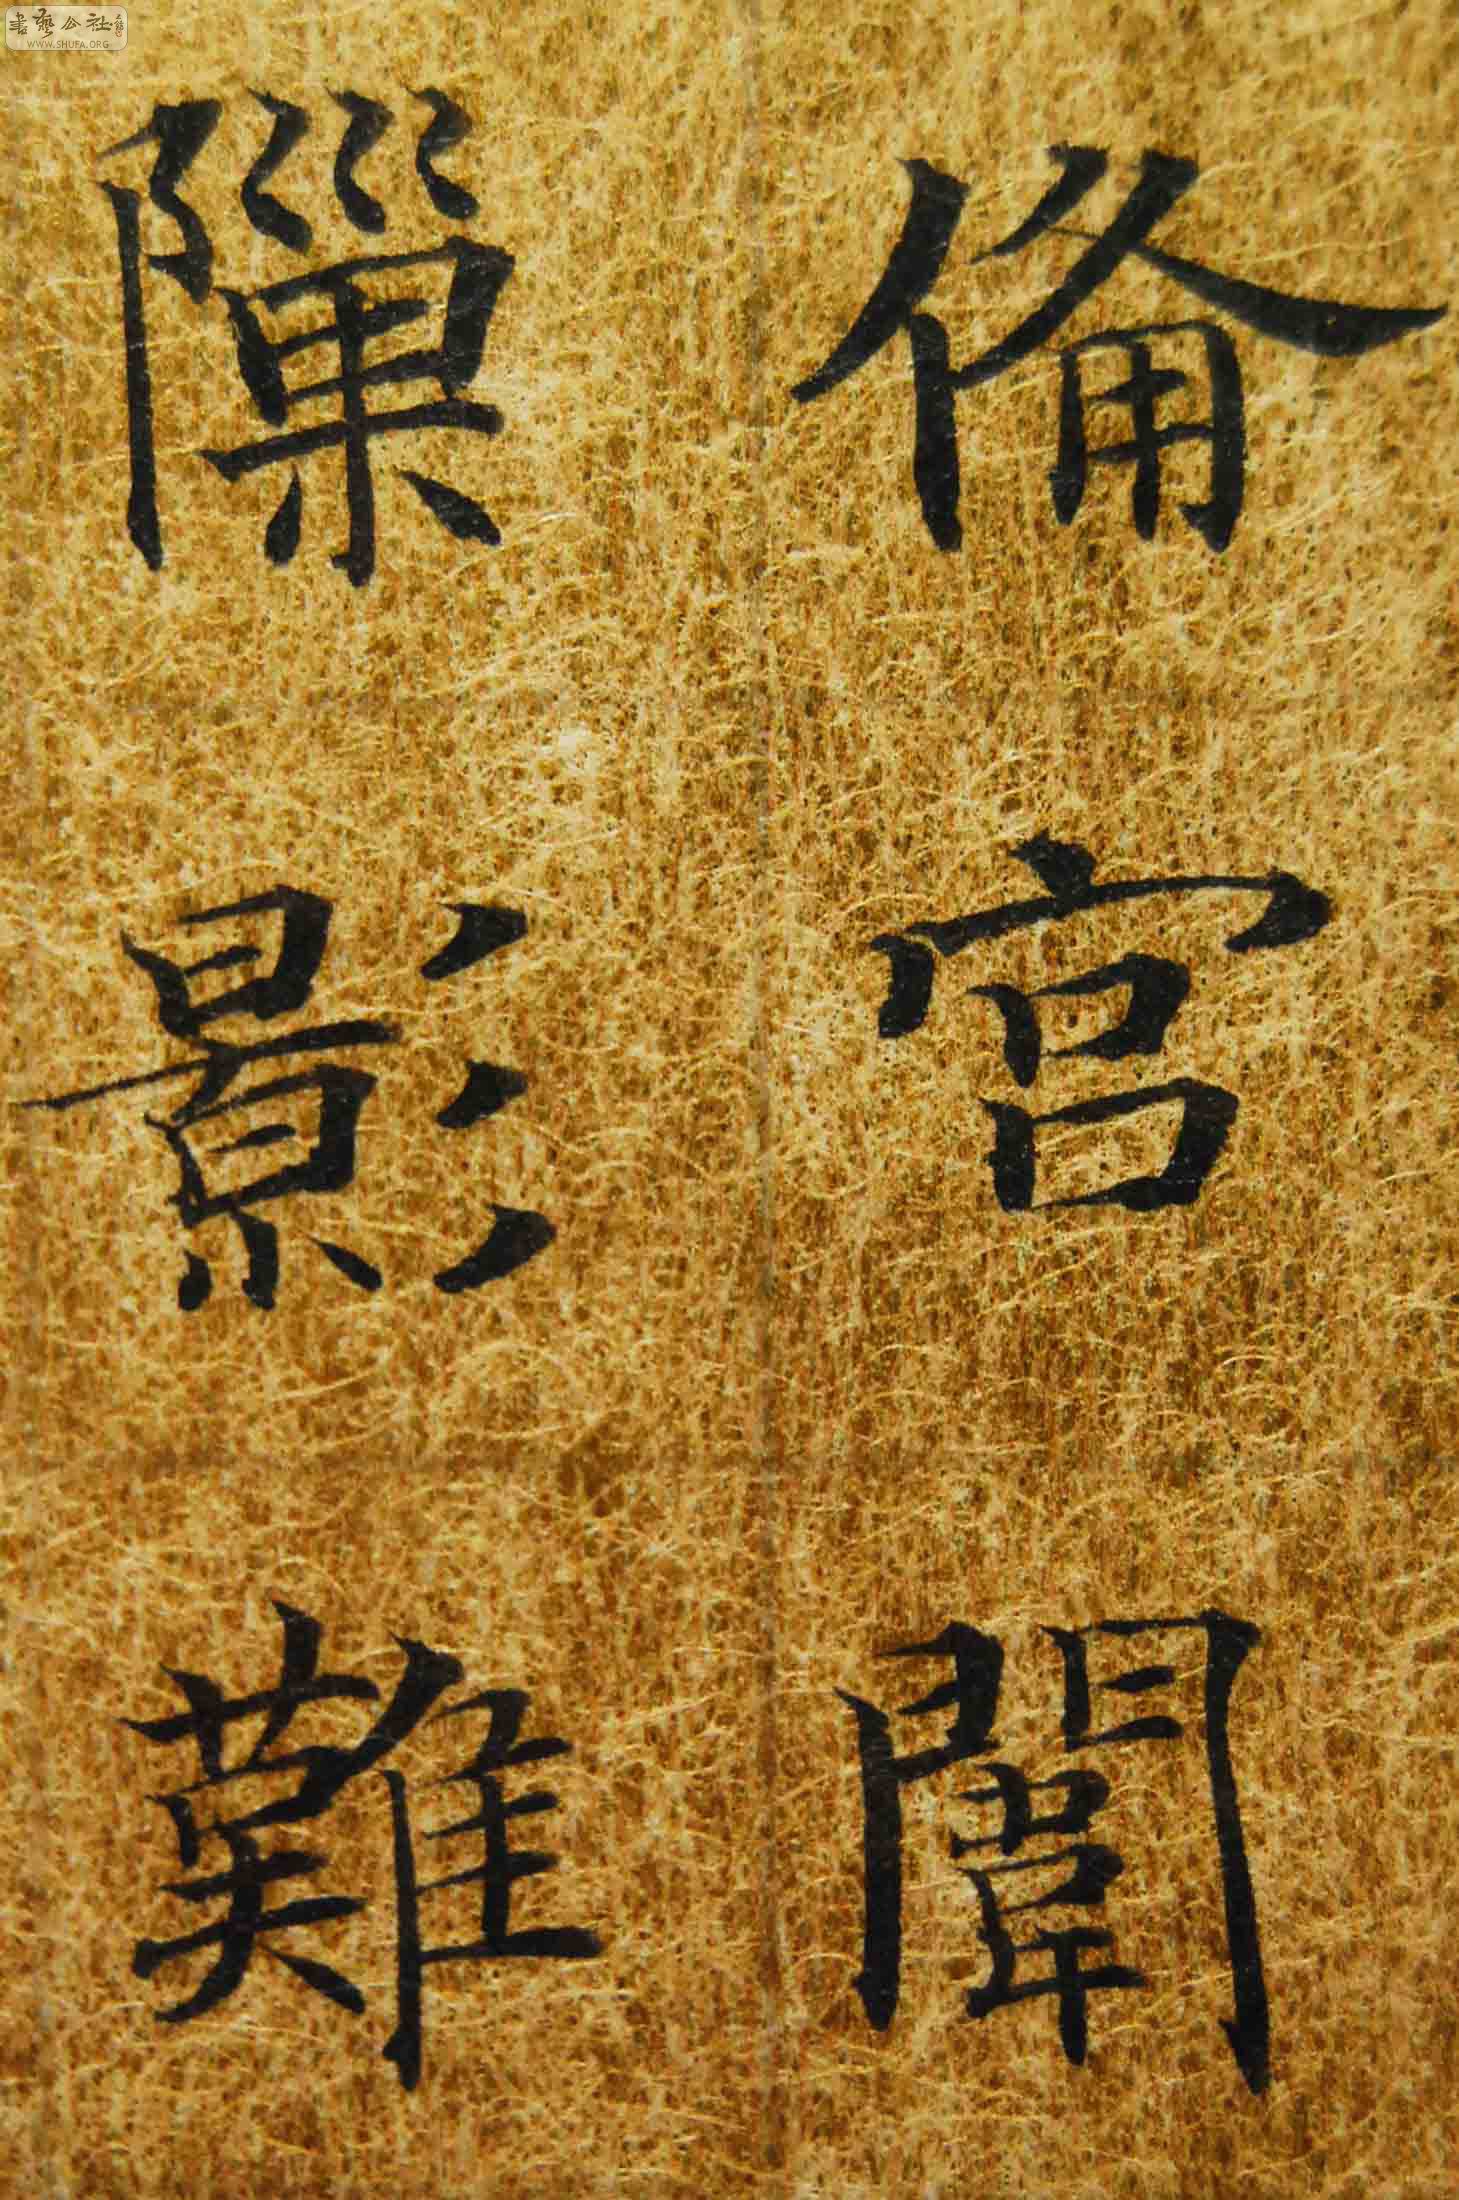 書藝公社
WWW.SHUFA.ORG
俻宮闈
隟影難